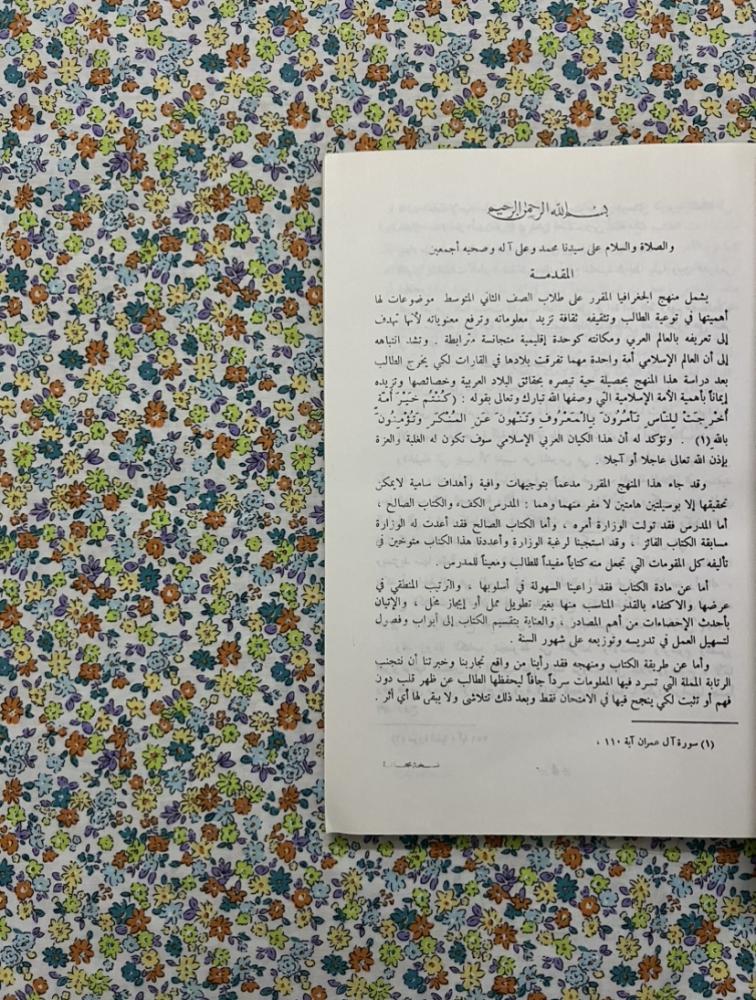 بسم الله الرحمن الرحيم
والصلاة والسلام على سيدنا محمد وعلى آله وصحبه أجمعين
المقدمة
يشمل منهج الجغرافيا المقرر على طلاب الصف الثاني المتوسط موضوعات لها
أهميتها في توعية الطالب وتثقيفه ثقافة تزيد معلوماته وترفع معنوياته لأنها تهدف
إلى تعريفه بالعالم العربي ومكانته كوحدة إقليمية متجانسة مترابطة . وتشد انتباهه
إلى أن العالم الإسلامي أمة واحدة مهما تفرقت بلادها في القارات لكي يخرج الطالب
بعد دراسة هذا المنهج بحصيلة حية تبصره بحقائق البلاد العربية وخصائصها وتزيده
إيماناً بأهمية الأمة الإسلامية التي وصفها الله تبارك وتعالى بقوله : (كُنْتُمْ خَيْرَ أمّة
أخْرِجَتْ للنّاس تَأمُرُونَ بِالمَعْرُوفِ وَتَنْهَونَ عَنِ المُنْكَرِ وَتُؤْمِنُونَ
بالله (١) . وتؤكد له أن هذا الكيان العربي الإسلامي سوف تكون له الغلبة والعزة
بإذن الله تعالى عاجلا أو آجلا .
وقد جاء هذا المنهج المقرر مدعماً بتوجيهات وافية وأهداف سامية لايمكن
تحقيقها إلا بوسيلتين هامتين لا مفر منهما وهما : المدرس الكفء والكتاب الصالح ،
أما المدرس فقد تولت الوزارة أمره ، وأما الكتاب الصالح فقد أعدت له الوزارة
مسابقة الكتاب الفائز ، وقد استجبنا لرغبة الوزارة وأعددنا هذا الكتاب متوخين في
تأليفه كل المقومات التي تجعل منه كتاباً مفيداً للطالب ومعيناً للمدرس .
أما عن مادة الكتاب فقد راعينا السهولة في أسلوبها ، والترتيب المنطقي في
عرضها والاكتفاء بالقدر المناسب منها بغير تطويل ممل أو إيجاز مخل ، والإتيان
بأحدث الإحصاءات من أهم المصادر ، والعناية بتقسيم الكتاب إلى أبواب وفصول
لتسهيل العمل في تدريسه وتوزيعه على شهور السنة .
وأما عن طريقة الكتاب ومنهجه فقد رأينا من واقع تجاربنا وخبرتنا أن نتجنب
الرتابة المملة التي تسرد فيها المعلومات سرداً جافاً ليحفظها الطالب عن ظهر قلب دون
فهم أو تثبت لكي ينجح فيها في الامتحان فقط وبعد ذلك تتلاشى ولا يبقى لها أي أثر .
(١) سورة آل عمران آية ١١٠ .